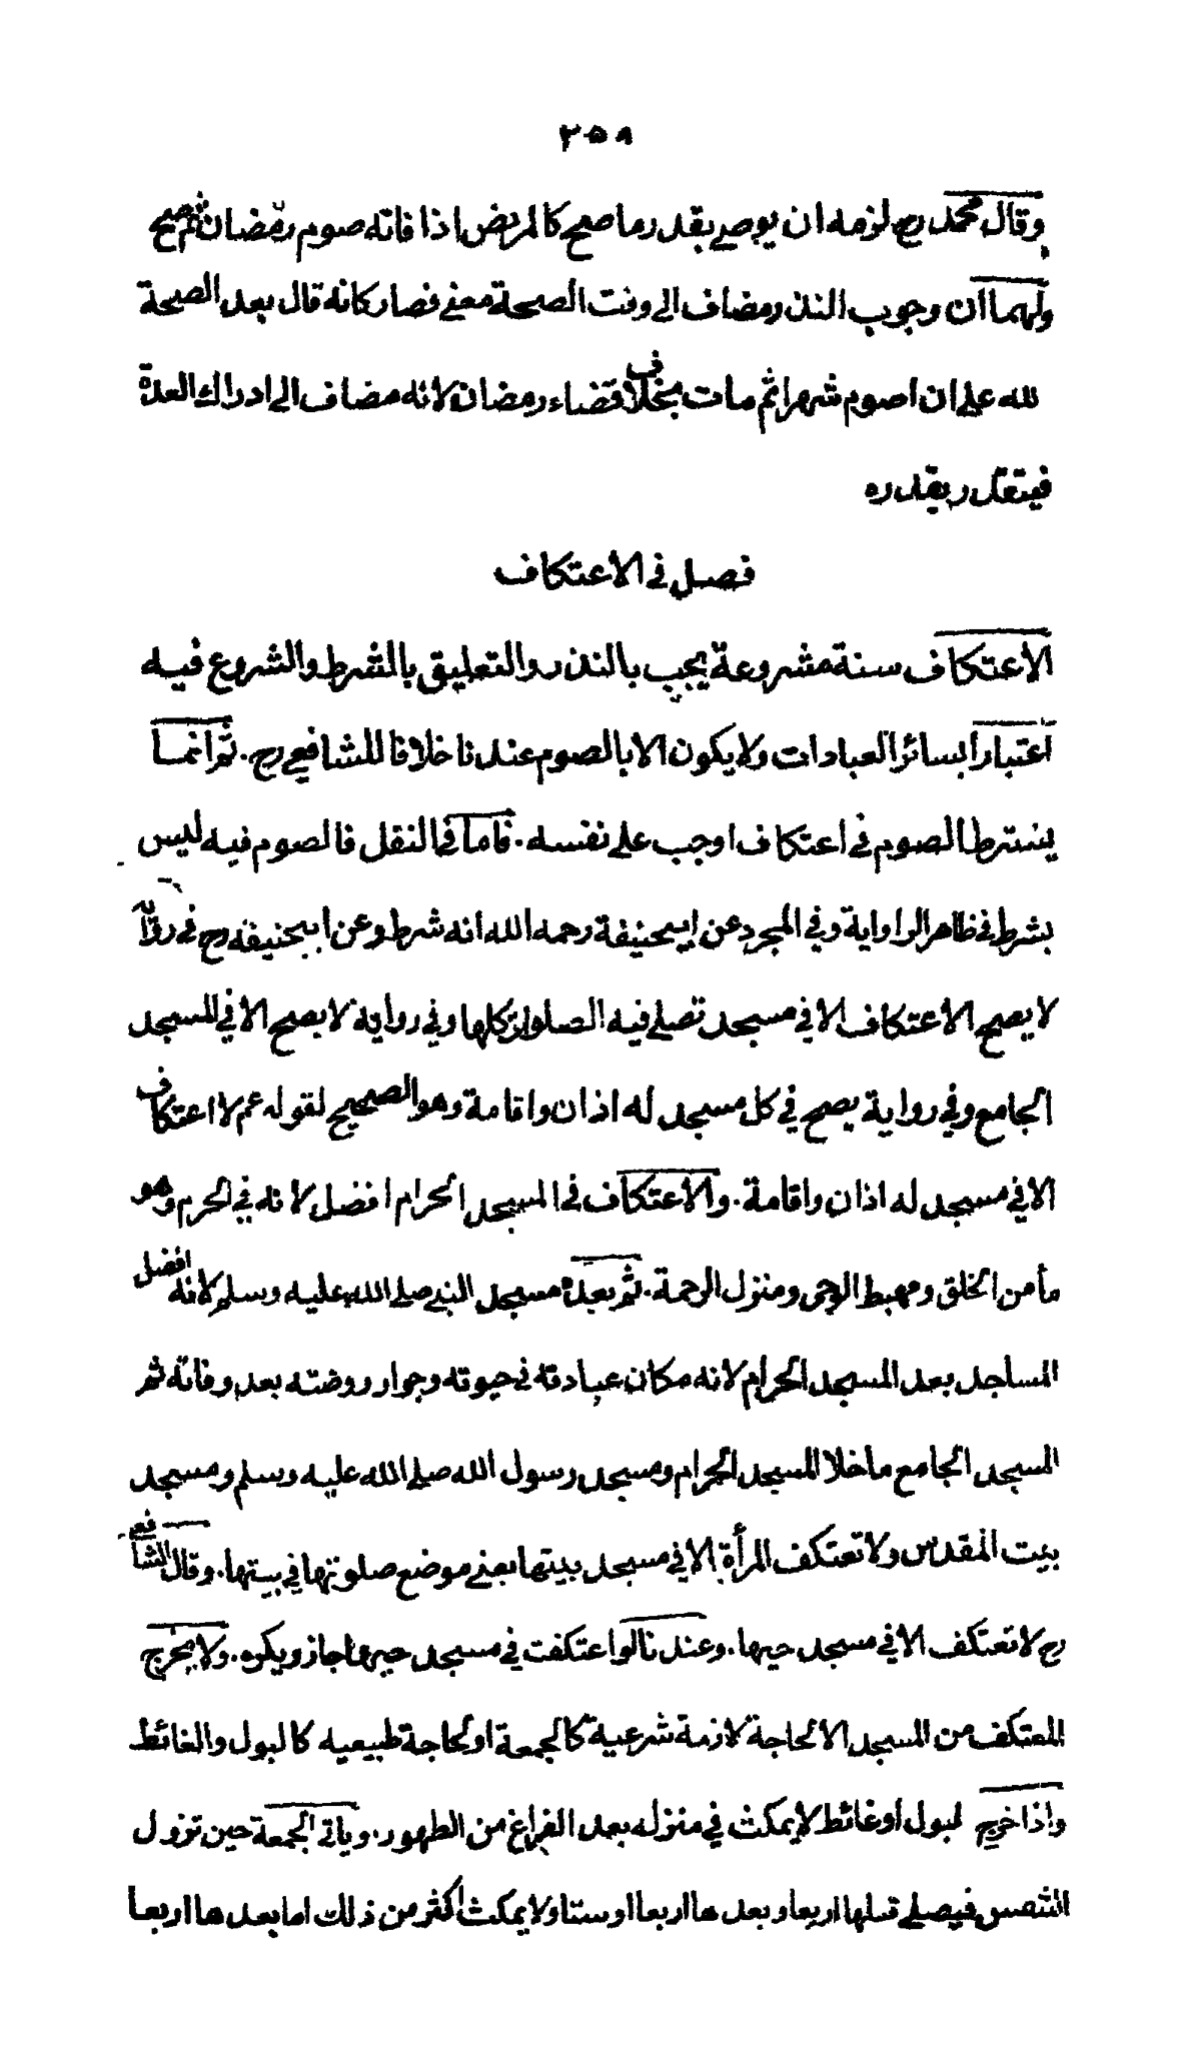 ٢٥٨
وقال محمد رح لزمه ان يوصي بقدر ما صح كالمريض اذا فاته صوم رمضان ثم صح
ولهما ان وجوب النذر مضاف الى وقت الصحة معنى فصار كانه قال بعد الصحة
لله على ان اصوم شهرا ثم مات بخلاف قضاء رمضان لانه مضاف الى ادراك العدة
فيتقدر بقدره
فصل في الاعتكاف
الاعتكاف سنة مشروعة يجب بالنذر والتعليق بالشرط والشروع فيه
اعتبارا بسائر العبادات ولا يكون الا بالصوم عندنا خلافا للشافعي رح. ثم انما
يشترط الصوم في اعتكاف اوجب على نفسه. فاما في النفل فالصوم فيه ليس
بشرط في ظاهر الراواية وفي المجرد عن ابيحنيفة رحمه الله انه شرط وعن ابيحنيفه رح في رواية
لا يصح الاعتكاف الا في مسجد تصلى فيه الصلوات كلها وفي رواية لا يصح الا في المسجد
الجامع وفي رواية يصح في كل مسجد له اذان واقامة وهو الصحيح لقوله عم لا اعتكاف
الا في مسجد له اذان واقامة. والاعتكاف في المسجد الحرام افضل لانه في الحرم وهو
مأمن الخلق ومهبط الوحى ومنزل الرحمة. ثم بعده مسجد النبي صلى الله عليه وسلم لانه افضل
المساجد بعد المسجد الحرام لانه مكان عبادته في حيوته وجوار روضته بعد وفاته ثم
المسجد الجامع ما خلا المسجد الحرام ومسجد رسول الله صلى الله عليه وسلم ومسجد
بيت المقدس ولا تعتكف المرأة الا في مسجد بيتها بعنى موضع صلوتها في بيتها. وقال الشافعي
رح لا تعتكف الا في مسجد حيها. وعندنا لو اعتكفت في مسجد حيها جاز ويكره. ولا يخرج
المعتكف من المسجد الا لحاجة لازمة شرعية كالجمعة او لحاجة طبيعيه كالبول والغائط
واذا خرج لبول أو غائط لا يمكث في منزله بعد الفراغ من الطهور. وياتى الجمعة حين تزول
الشمس فيصلى قبلها اربعا وبعدها اربعا او ستا ولا يمكث اكثر من ذلك اما بعدها اربعا